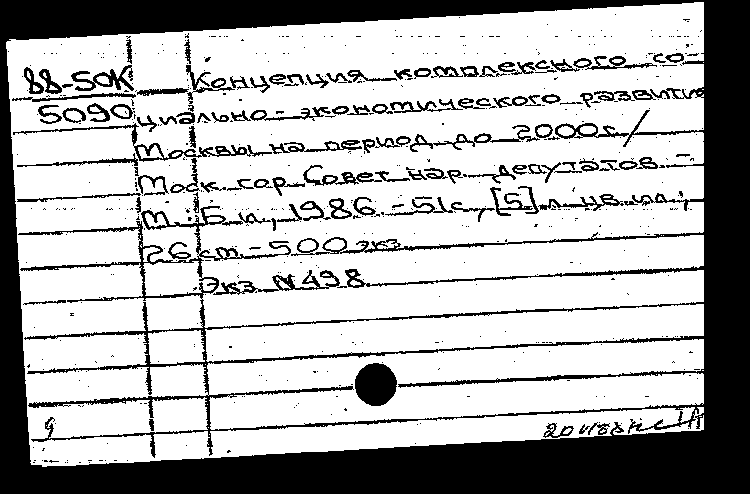 88-50К Концепция комплексного со-
5090 циально-экономического развития
Москвы на период до 2000г. /
Моск. гор. Совет нар. депутатов. -
М.: Б.и., 1986. - 51с., [5] л. цв. ил.;
26 см. - 500 экз.
Экз. №498.
9